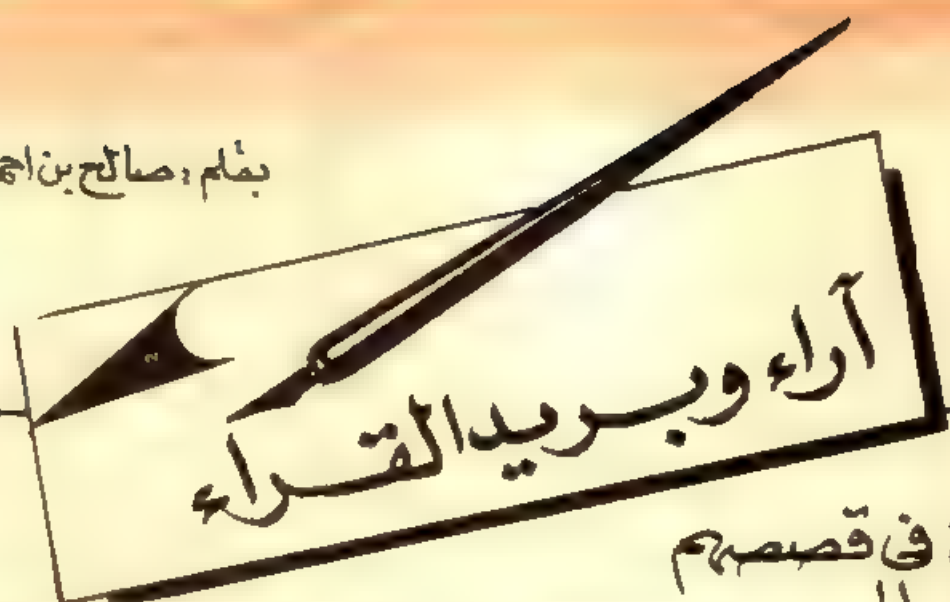 بقلم : صالح بن
آراء وبريد القراء
في قصصهم